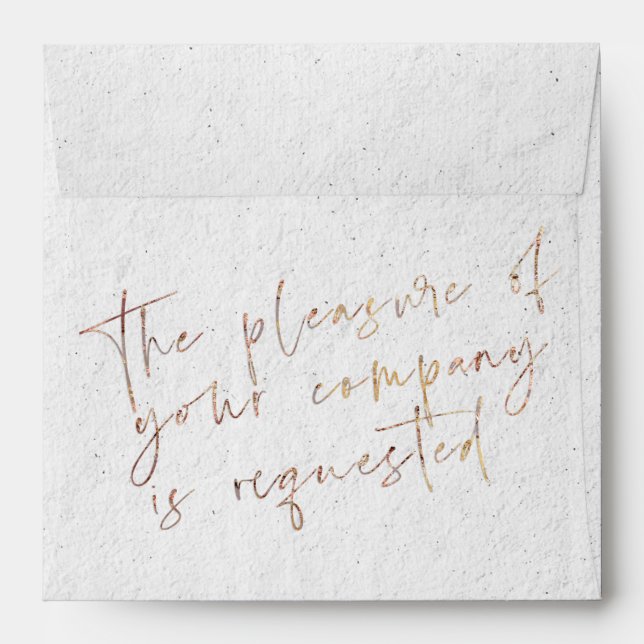 The pleasure of
your company
is requested